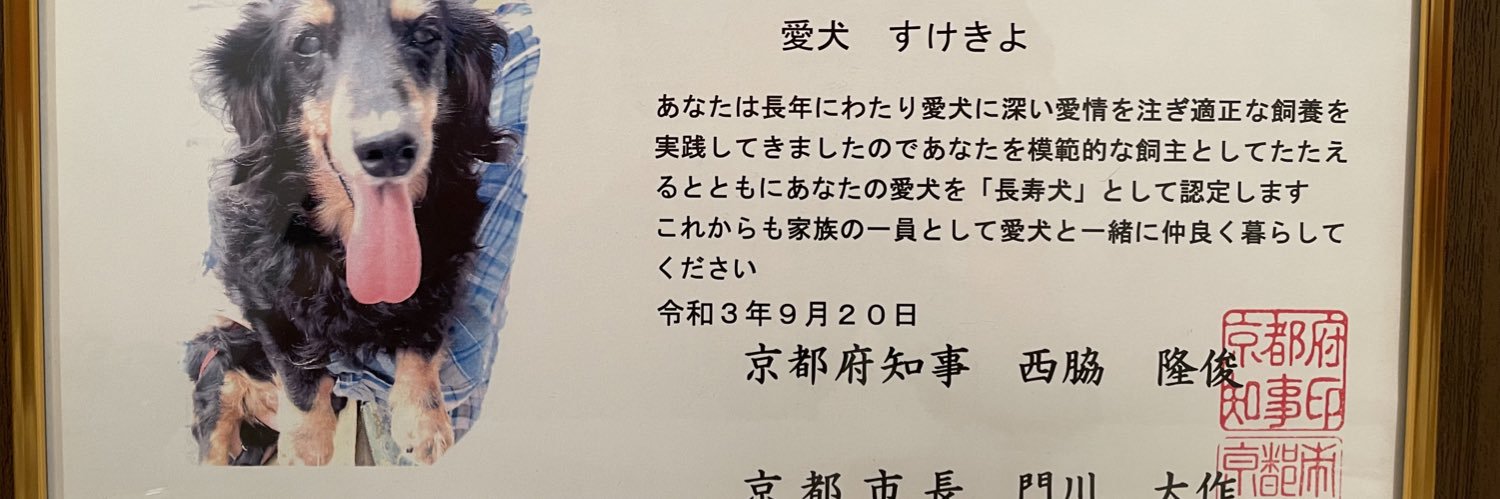 愛犬　すけきよ
あなたは長年にわたり愛犬に深い愛情を注ぎ適正な飼養を
実践してきましたのであなたを模範的な飼主としてたたえ
るとともにあなたの愛犬を「長寿犬」として認定します
これからも家族の一員として愛犬と一緒に仲良く暮らして
ください
令和３年９月２０日
京都府知事　西脇　隆俊
京都府知事印
京都市長　門川　大作
京都市